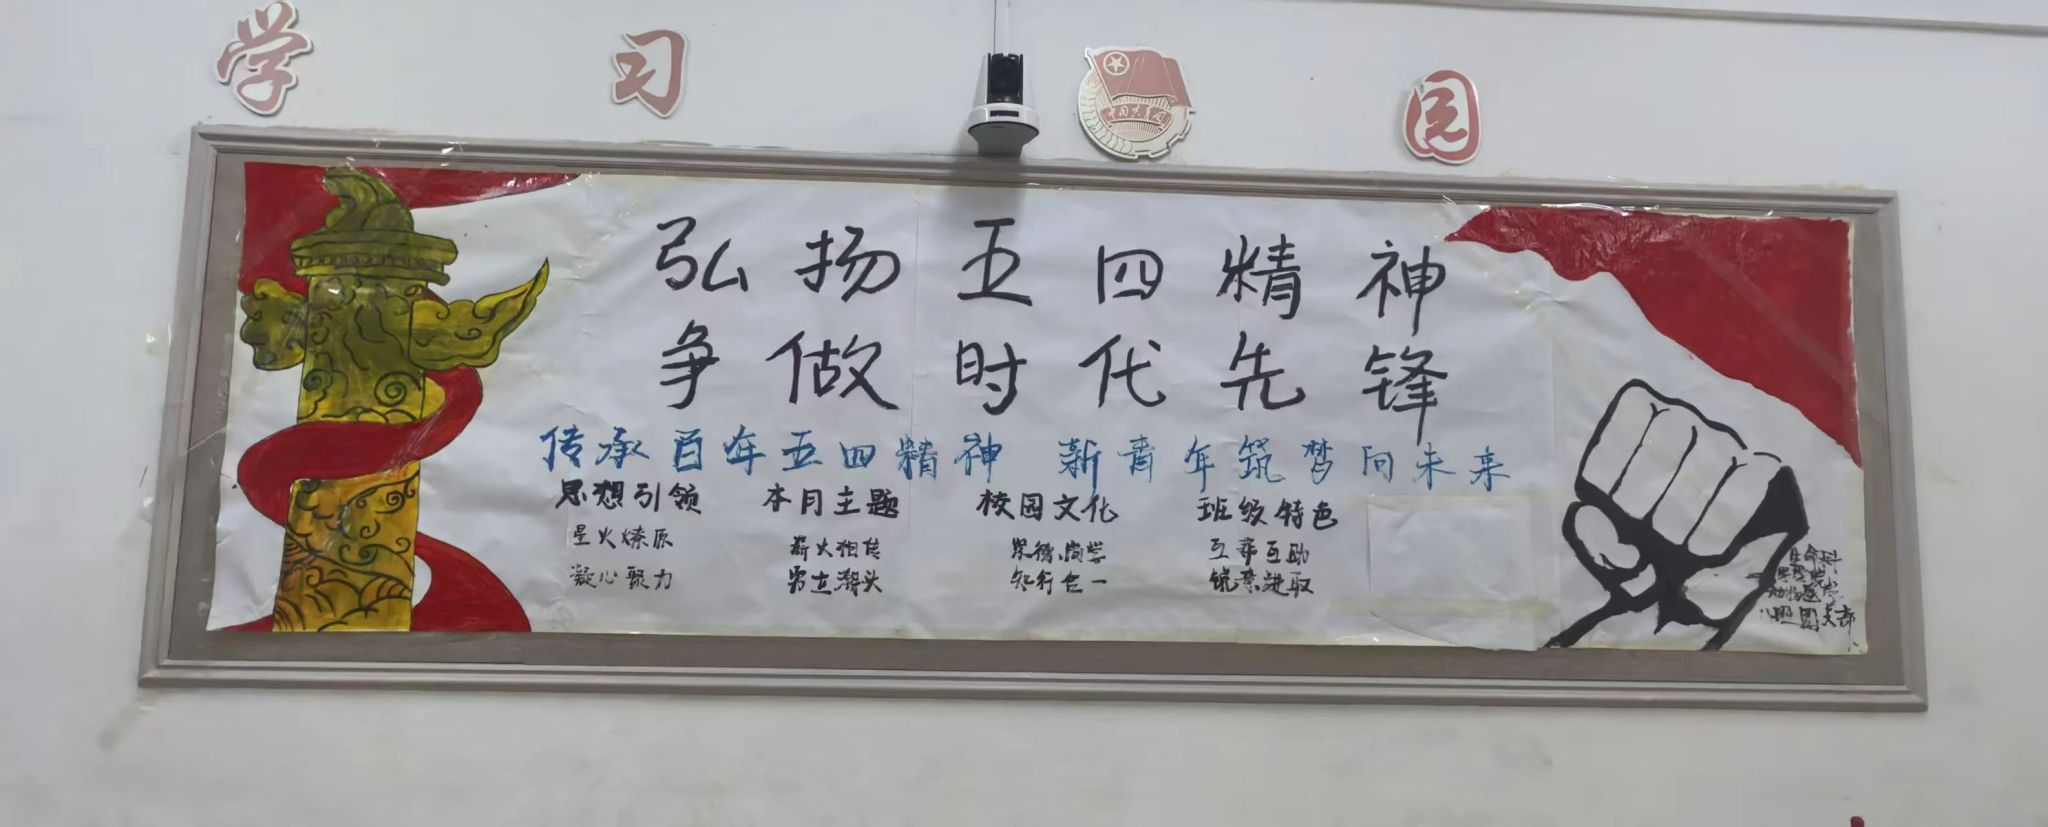 学习园
中国共青团
弘扬五四精神
争做时代先锋
传承百年五四精神 新青年筑梦向未来
思想引领 本月主题 校园文化 班级特色
星火燎原 薪火相传 崇德尚学 互帮互助
凝心聚力 勇立潮头 知行合一 锐意进取
生命科
学学院
动物医学
八班团支部